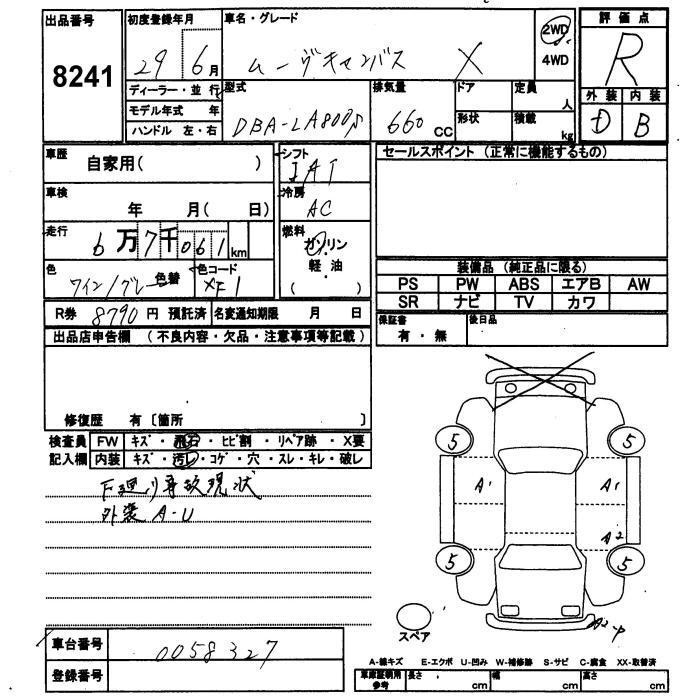 出品番号 初度登録年月 車名・グレード 評価点
8241 29 6月 ムーヴキャンバス X 2WD R
4WD
ディーラー・並行 型式 排気量 ドア 定員 外装 内装
モデル年式 年 人
ハンドル 左・右 DBA-LA800S 660 CC 形状 積載 kg D B
車歴 自家用( ) シフト IAT セールスポイント (正常に機能するもの)
車検 年 月( 日) 冷房 AC
走行 6万7千061km 燃料 ガソリン
軽・油
( )
色 ワイン/グレー 色替 色コード XF1 装備品 (純正品に限る)
PS PW ABS エアB AW
SR ナビ TV カワ
R券 8790円 預託済 名変通知期限 月 日 保証書 有・無 後日品
出品店申告欄 (不良内容・欠品・注意事項等記載)
修復歴 有〔箇所 〕
検査員 FW キズ・飛石・ヒビ割・リペア跡・X要
記入欄 内装 キズ・汚レ・コゲ・穴・スレ・キレ・破レ
下廻り専故現状
外装 A-U
5 5
A1 A1
A2
5 5
A2-P
スペア
車台番号 0058327
登録番号
A-線キズ E-エクボ U-凹み W-補修跡 S-サビ C-腐食 XX-取替済
車庫証明用参考 長さ cm 幅 cm 高さ cm